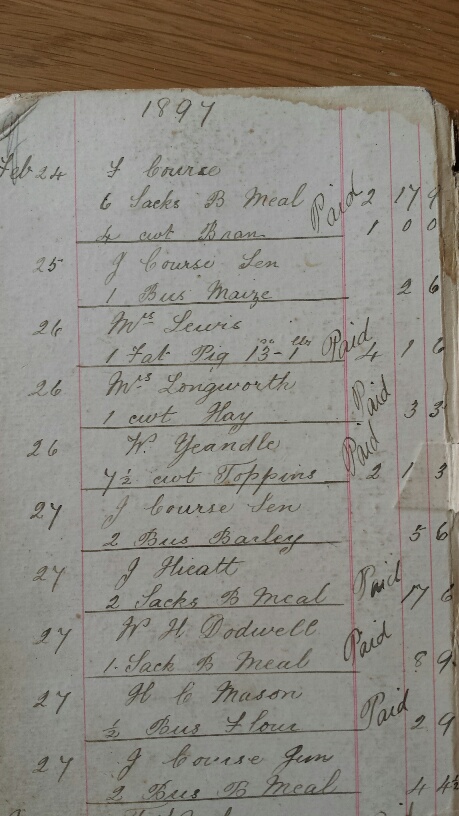 1897
Feb 24 F Course
6 Sacks B Meal Paid 2 17 9
4 cwt Bran 1 0 0
25 J Course Sen
1 Bus Maize 2 6
26 Mrs Lewis
1 Fat Pig 13-1 Paid 4 1 6
26 Mrs Longworth
1 cwt Hay Paid 3 3
26 W. Yeandle
7½ cwt Toppins Paid 2 1 3
27 J Course Sen
2 Bus Barley 5 6
27 J Hieatt
2 Sacks B Meal Paid 17 6
27 W H Dodwell
1 Sack B Meal Paid 8 9
27 H C Mason
½ Bus Flour Paid 2 9
27 J Course Jun
2 Bus B Meal 4 4½